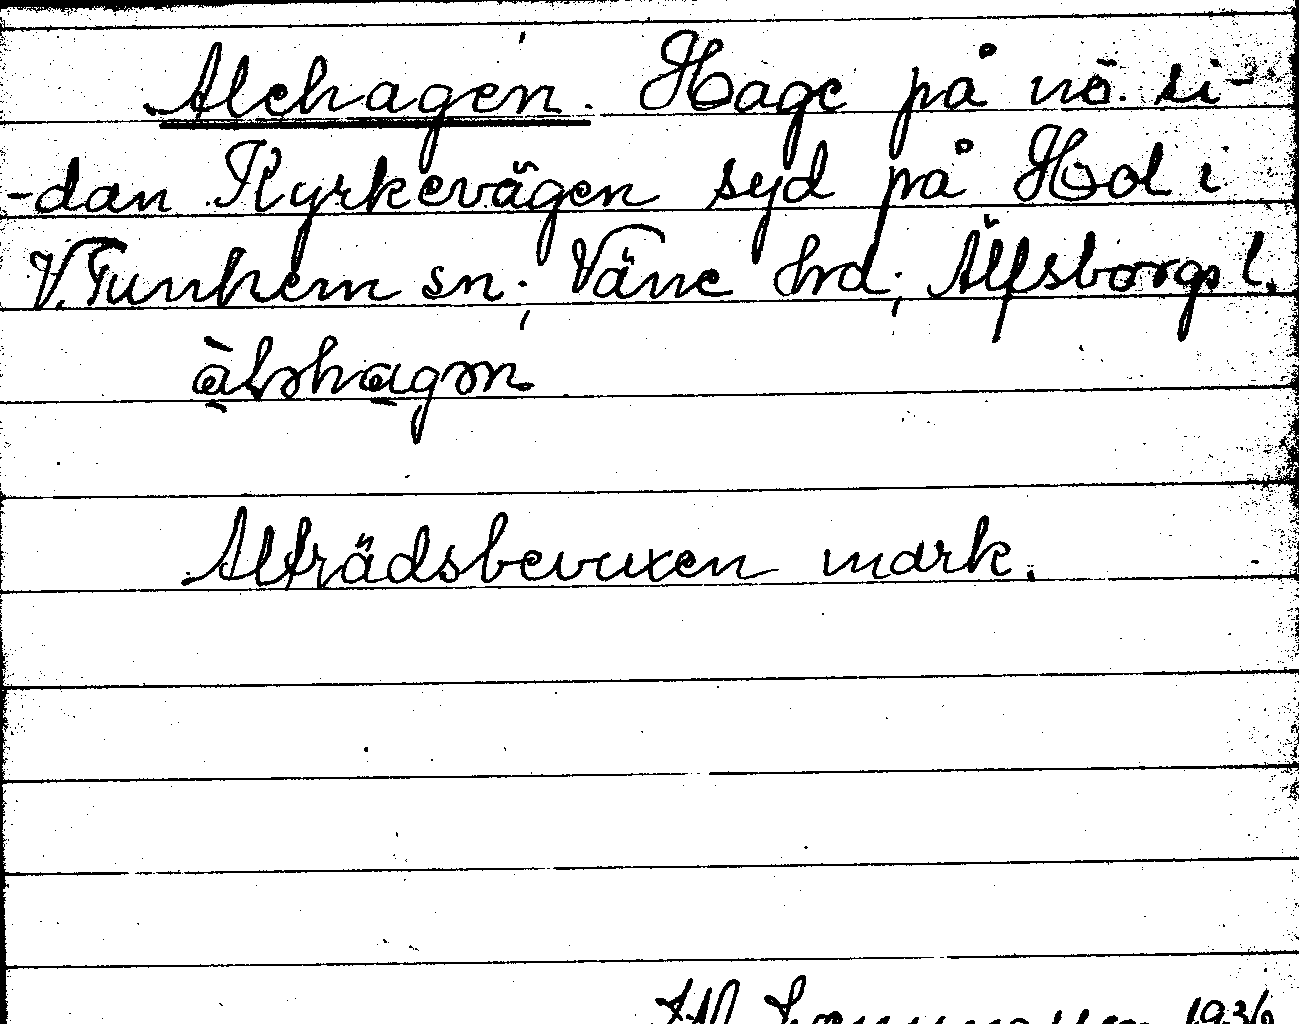 Alehagen. Hage på nö. si-
-dan Kyrkevägen syd på Hol i
V. Tunhem sn; Väne hrd; Älfsborgs l.
àləhagən
Alträdsbevuxen mark.
1936